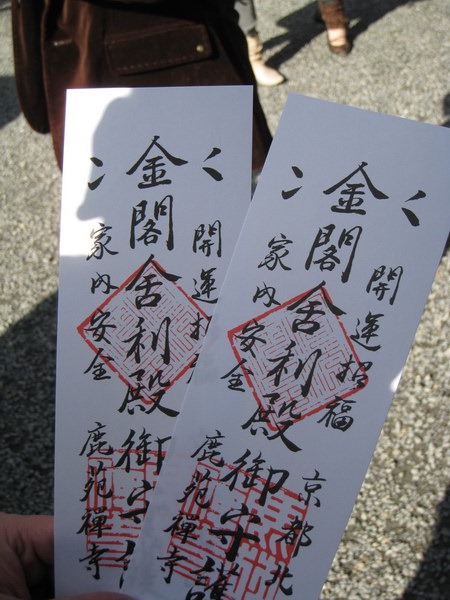 開運招
金閣舍利殿御守
家内安全
鹿苑禅寺
開運招福
京都北
金閣舍利殿御守護
家内安全
鹿苑禅寺